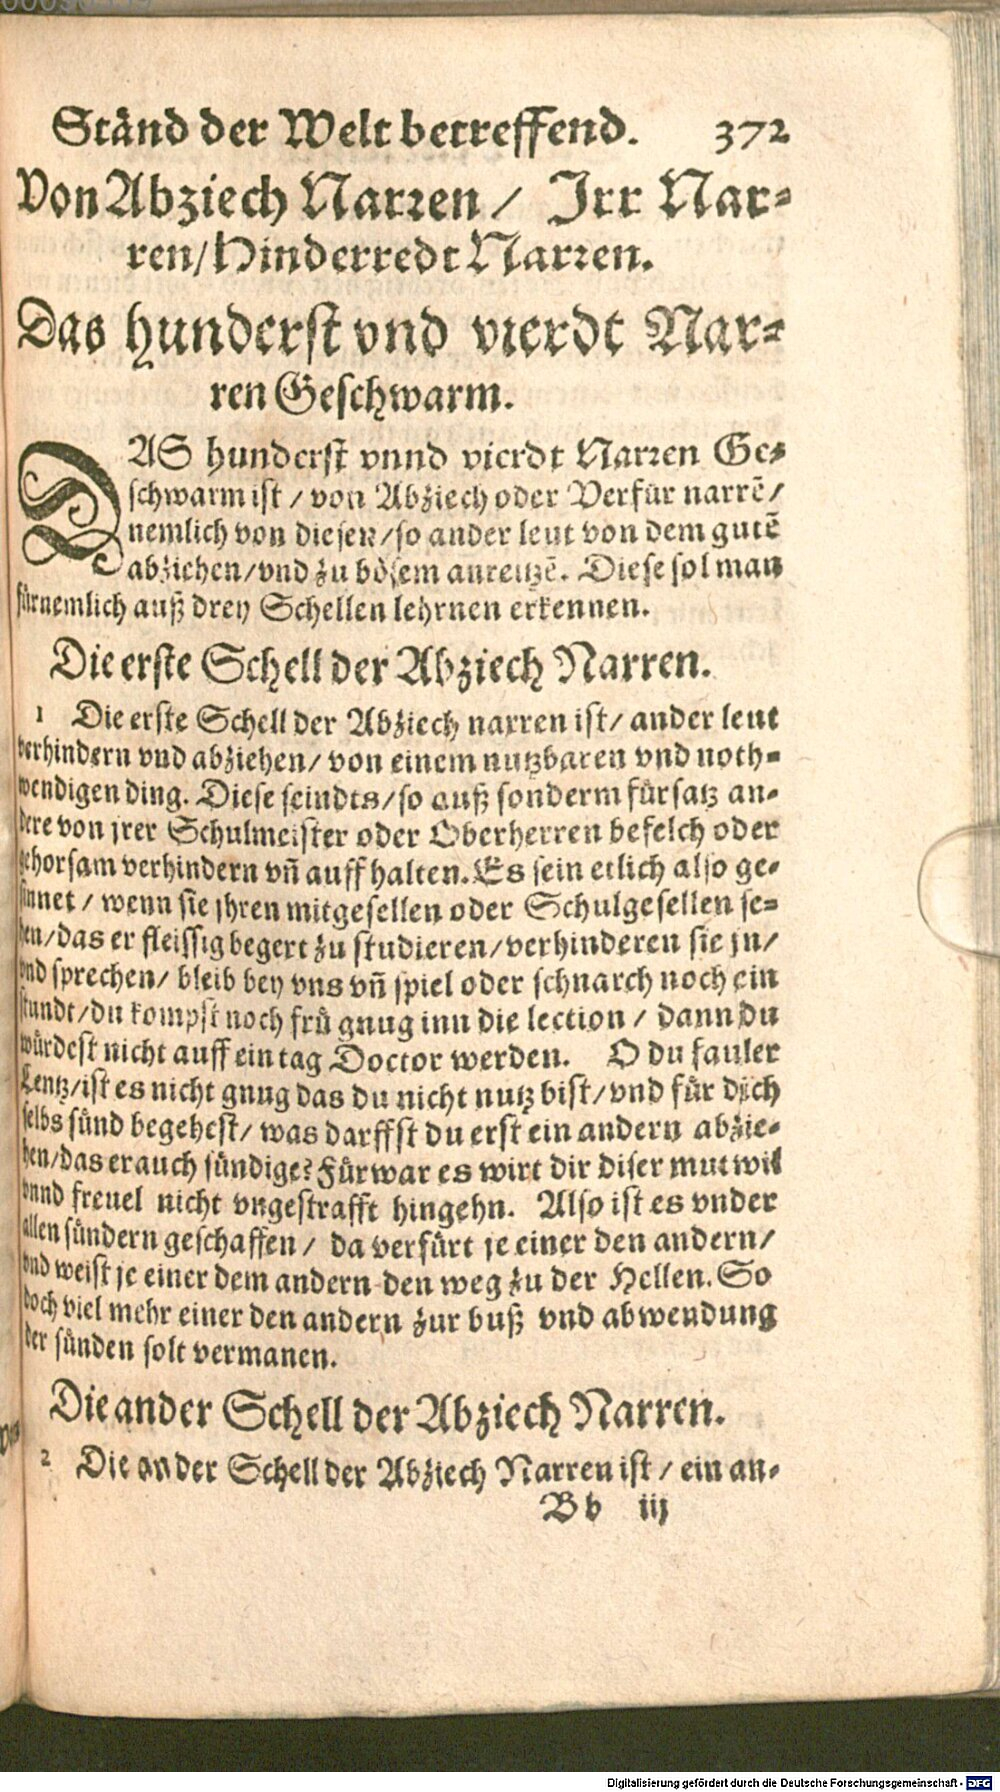 Ständ der Welt betreffend. 372
Von Abziech Narren / Irr Nar-
ren / Hinderredt Narren.
Das hunderst vnd vierdt Nar-
ren Geschwarm.
DAS hunderst vnnd vierdt Narren Ge-
schwarm ist / von Abziech oder Verfür narrẽ /
nemlich von diesen / so ander leut von dem gutẽ
abziehen / vnd zu bösem anreitzẽ. Diese sol man
fürnemlich auß drey Schellen lehrnen erkennen.
Die erste Schell der Abziech Narren.
1 Die erste Schell der Abziech narren ist / ander leut
verhindern vnd abziehen / von einem nutzbaren vnd noth-
wendigen ding. Diese seindts / so auß sonderm fürsatz an-
dere von jrer Schulmeister oder Oberherren befelch oder
gehorsam verhindern vñ auff halten. Es sein etlich also ge-
sinnet / wenn sie jhren mitgesellen oder Schulgesellen se-
hen / das er fleissig begert zu studieren / verhinderen sie jn /
vnd sprechen / bleib bey vns vñ spiel oder schnarch noch ein
stundt / du kompst noch frü gnug inn die lection / dann du
würdest nicht auff ein tag Doctor werden. O du fauler
Lentz / ist es nicht gnug das du nicht nutz bist / vnd für dich
selbs sünd begehest / was darffst du erst ein andern abzie-
hen / das er auch sündige? Fürwar es wirt dir diser mutwil
vnnd freuel nicht vngestrafft hingehn. Also ist es vnder
allen sündern geschaffen / da verfürt je einer den andern /
vnd weist je einer dem andern den weg zu der Hellen. So
doch viel mehr einer den andern zur buß vnd abwendung
der sünden solt vermanen.
Die ander Schell der Abziech Narren.
2 Die ander Schell der Abziech Narren ist / ein an-
Bb iij
Digitalisierung gefördert durch die Deutsche Forschungsgemeinschaft - DFG